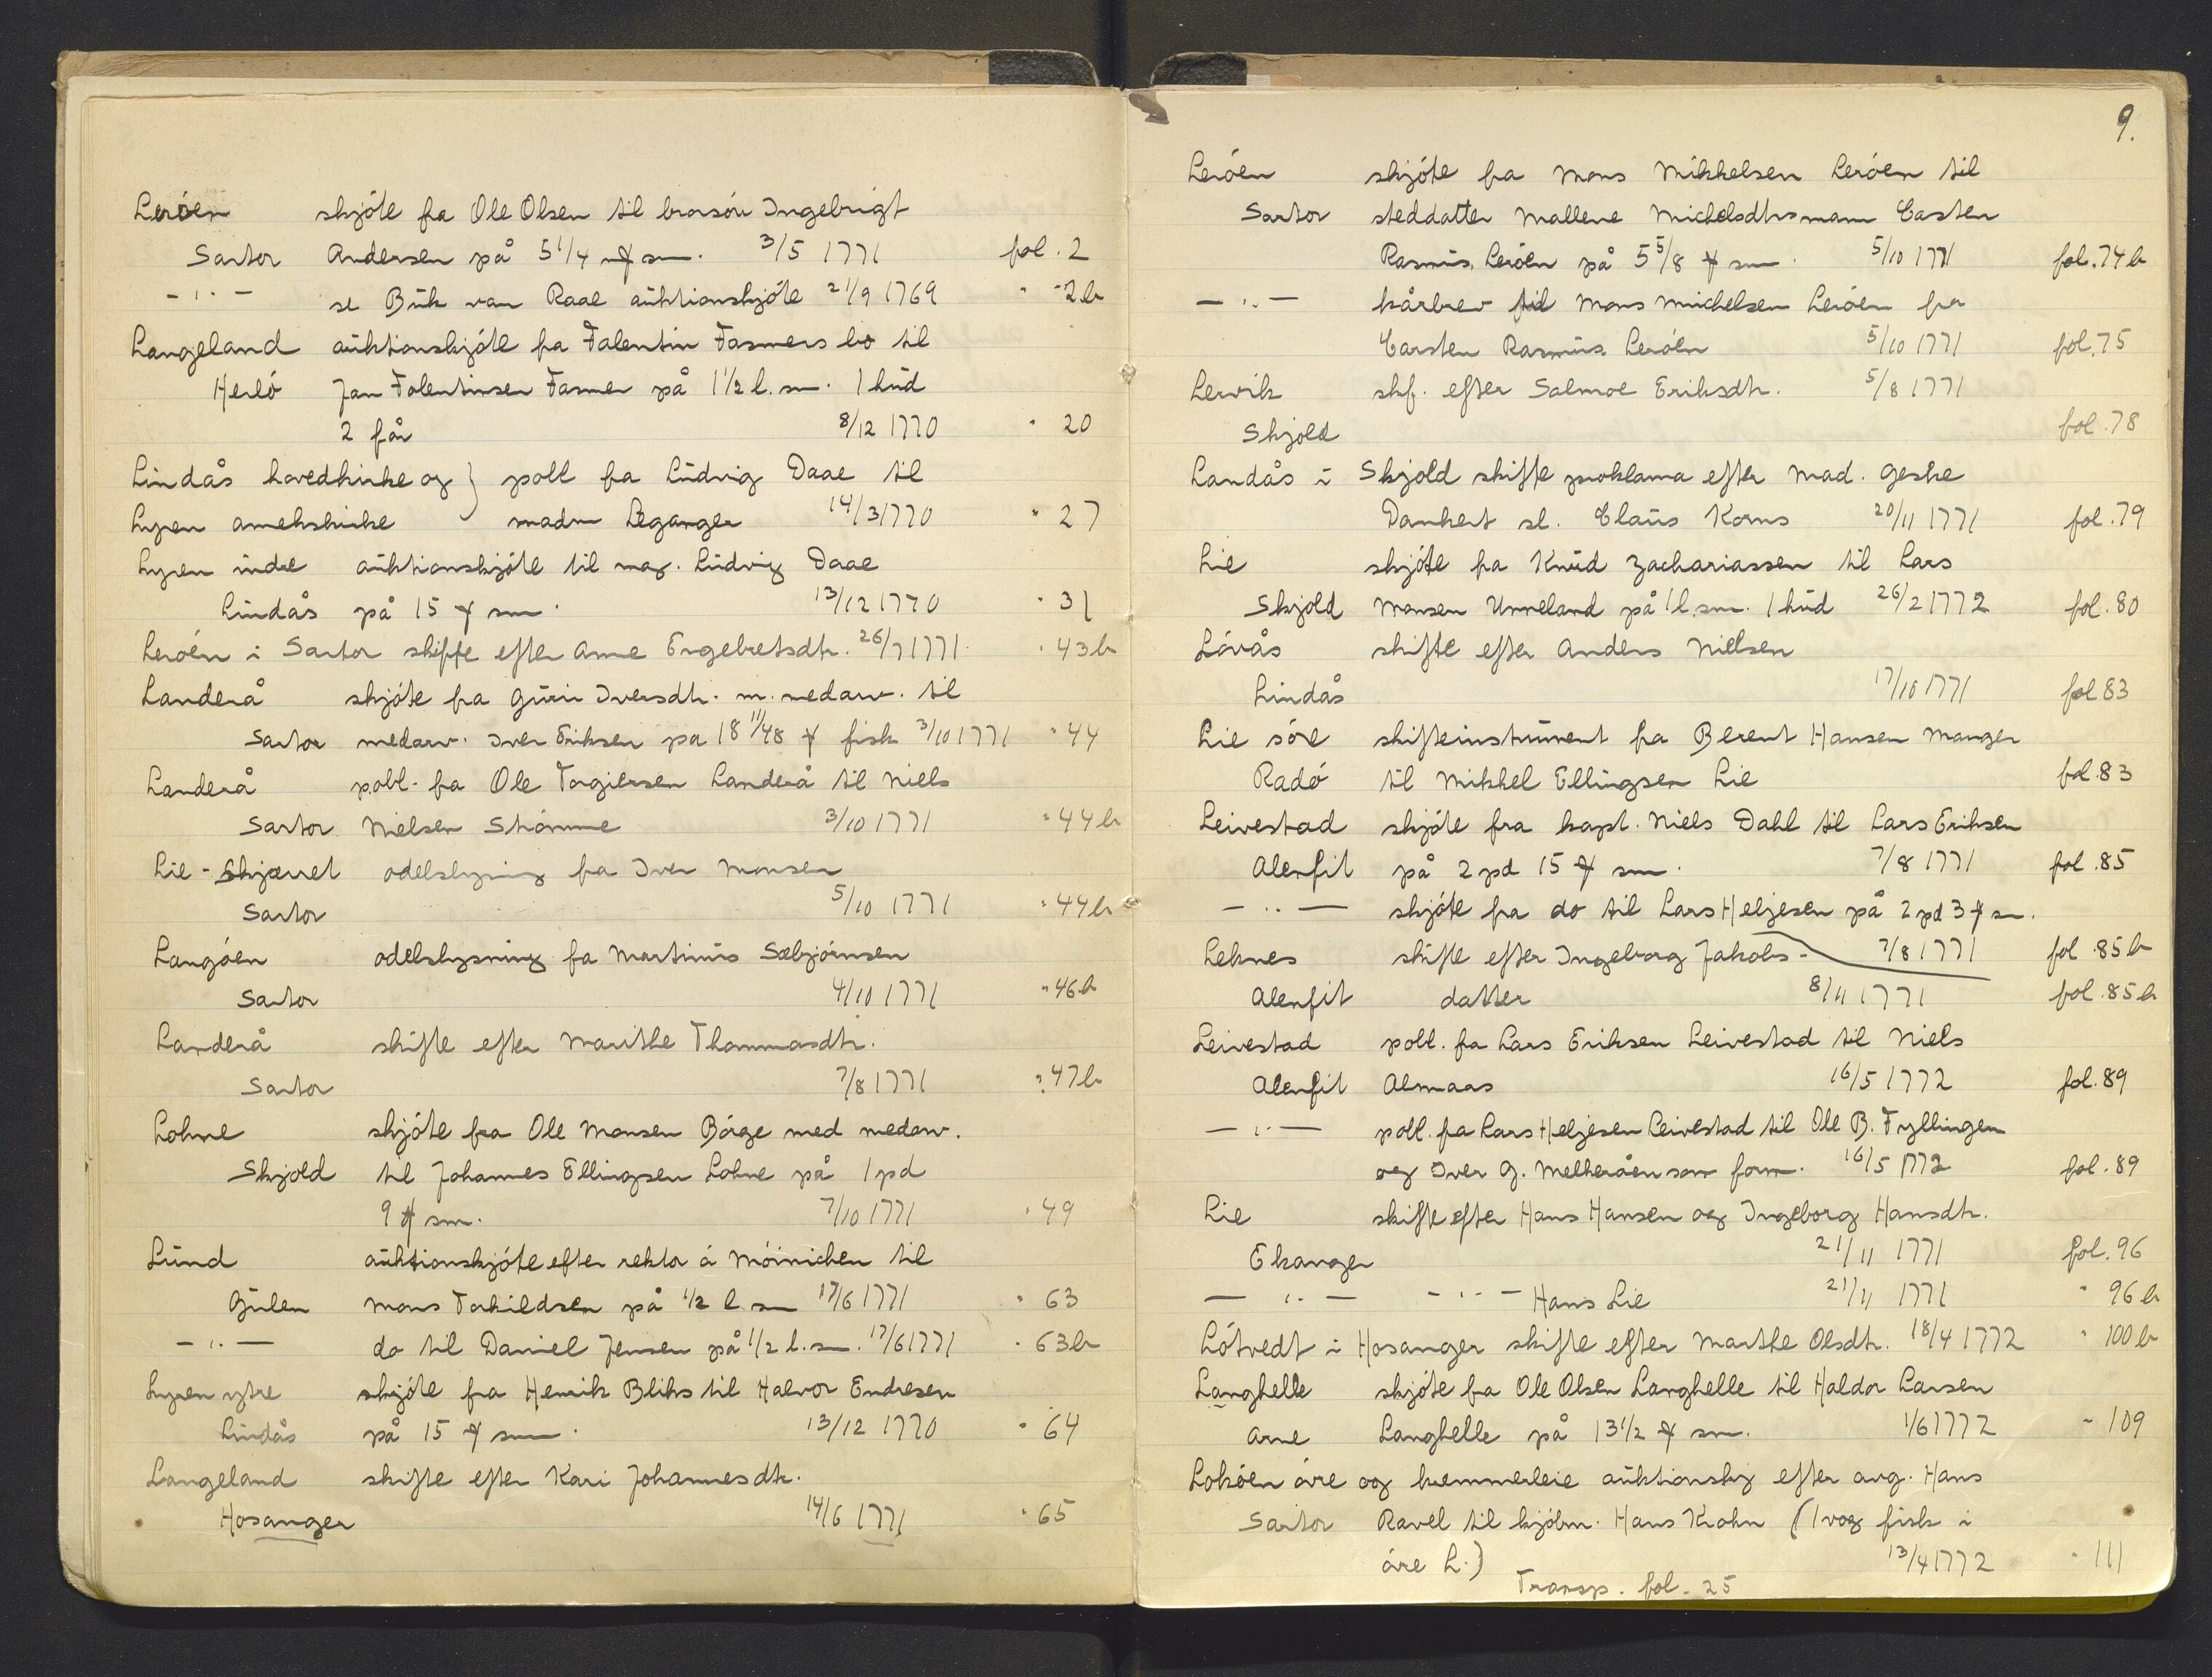 Leröen skjöte fra Ole Olsen til brorsön Ingebrigt
Sartor Andersen på 5 1/4 ℔ sm. 3/5 1771 fol. 2
- " - se Bük van Raae auktionskjöte 21/9 1769 " 2b
Langeland auktionskjöte fra Falentin Fasmers bo til
Herlö Jan Falentinsen Fasmer på 1 1/2 l. sm. 1 hud
2 får 8/12 1770 " 20
Lindås hovedkirke og } pobl fra Ludvig Daae til
Lygren annekskirke madm Leganger 14/3 1770 " 27
Lygren indre auktionskjöte til mag. Ludvig Daae
Lindås på 15 ℔ sm. 13/12 1770 " 31
Leröen i Sartor skifte efter Anne Engebretsdtr. 26/7 1771 " 43b
Landerå skjöte fra Guri Iversdtr. m. medarv. til
Sartor medarv. Iver Eriksen pa 18 11/48 ℔ fisk 3/10 1771 " 44
Landerå pobl. fra Ole Torgiersen Landerå til Niels
Sartor Nielsen Strömme 3/10 1771 " 44b
Lie - Skjærret odelslysning fra Iver Monsen
Sartor 5/10 1771 " 44b
Langöen odelslysning fra Martinus Sæbjörnsen
Sartor 4/10 1771 " 46b
Landerå skifte efter Marithe Thommasdtr.
Sartor 7/8 1771 " 47b
Lohne skjöte fra Ole Monsen Börge med medarv.
Skjold til Johannes Ellingsen Lohne på 1 pd
9 ℔ sm. 7/10 1771 " 49
Lund auktionskjöte efter rektor á Möinichen til
Gulen Mons Torkildsen på 1/2 l. sm 17/6 1771 " 63
- " - do til Daniel Jensen på 1/2 l. sm. 17/6 1771 " 63b
Lygren ytre skjöte fra Henrik Bliks til Halvor Endresen
Lindås på 15 ℔ sm. 13/12 1770 " 64
Langeland skifte efter Kari Johannesdtr.
Hosanger 14/6 1771 " 65
9.
Leröen skjöte fra Mons Mikkelsen Leröen til
Sartor steddatter Mallene Michelsdtrs mann Casten
Rasmus. Leröen på 5 5/8 ℔ sm. 5/10 1771 fol. 74b
- " - kårbrev til Mons Michelsen Leröen fra
Carsten Rasmus. Leröen 5/10 1771 fol. 75
Lervik skf. efter Salmoe Eriksdtr. 5/8 1771
Skjold fol. 78
Landås i Skjold skifte proklama efter Mad. Geske
Dankert sl. Claus Korns 20/11 1771 fol. 79
Lie skjöte fra Knud Zachariassen til Lars
Skjold Monsen Unneland på 1 l. sm. 1 hud 26/2 1772 fol. 80
Lövås skifte efter Anders Nielsen
Lindås 17/10 1771 fol 83
Lie söre skifteinstrument fra Berent Hansen Manger
Radö til Mikkel Ellingsen Lie fol. 83
Leivestad skjöte fra kapt. Niels Dahl til Lars Eriksen
Alenfit på 2 pd 15 ℔ sm. 7/8 1771 fol. 85
- " - skjöte fra do til Lars Heljesen på 2 pd 3 ℔ sm.
Leknes skifte efter Ingeborg Jakobs- 7/8 1771 fol 85b
Alenfit datter 8/11 1771 fol. 85b
Leivestad pobl. fra Lars Eriksen Leivestad til Niels
Alenfit Almaas 16/5 1772 fol. 89
- " - pobl. fra Lars Heljesen Leivestad til Ole B. Fyllingen
og Iver G. Melheråen som form. 16/5 1772 fol. 89
Lie skifte efter Hans Hansen og Ingeborg Hansdtr.
Ekanger 21/11 1771 fol. 96
- " - - " - Hans Lie 21/11 1771 " 96b
Lötvedt i Hosanger skifte efter Marthe Olsdtr. 18/4 1772 " 100b
Langhelle skjöte fra Ole Olsen Langhelle til Haldor Larsen
Arne Langhelle på 13 1/2 ℔ sm. 1/6 1772 " 109
Loköen övre og kremmerleie auktionskj efter avg. Hans
Sartor Ravel til kjöbm. Hans Krohn (1 vog fisk i
övre L.) 13/4 1772 " 111
Transp. fol. 25